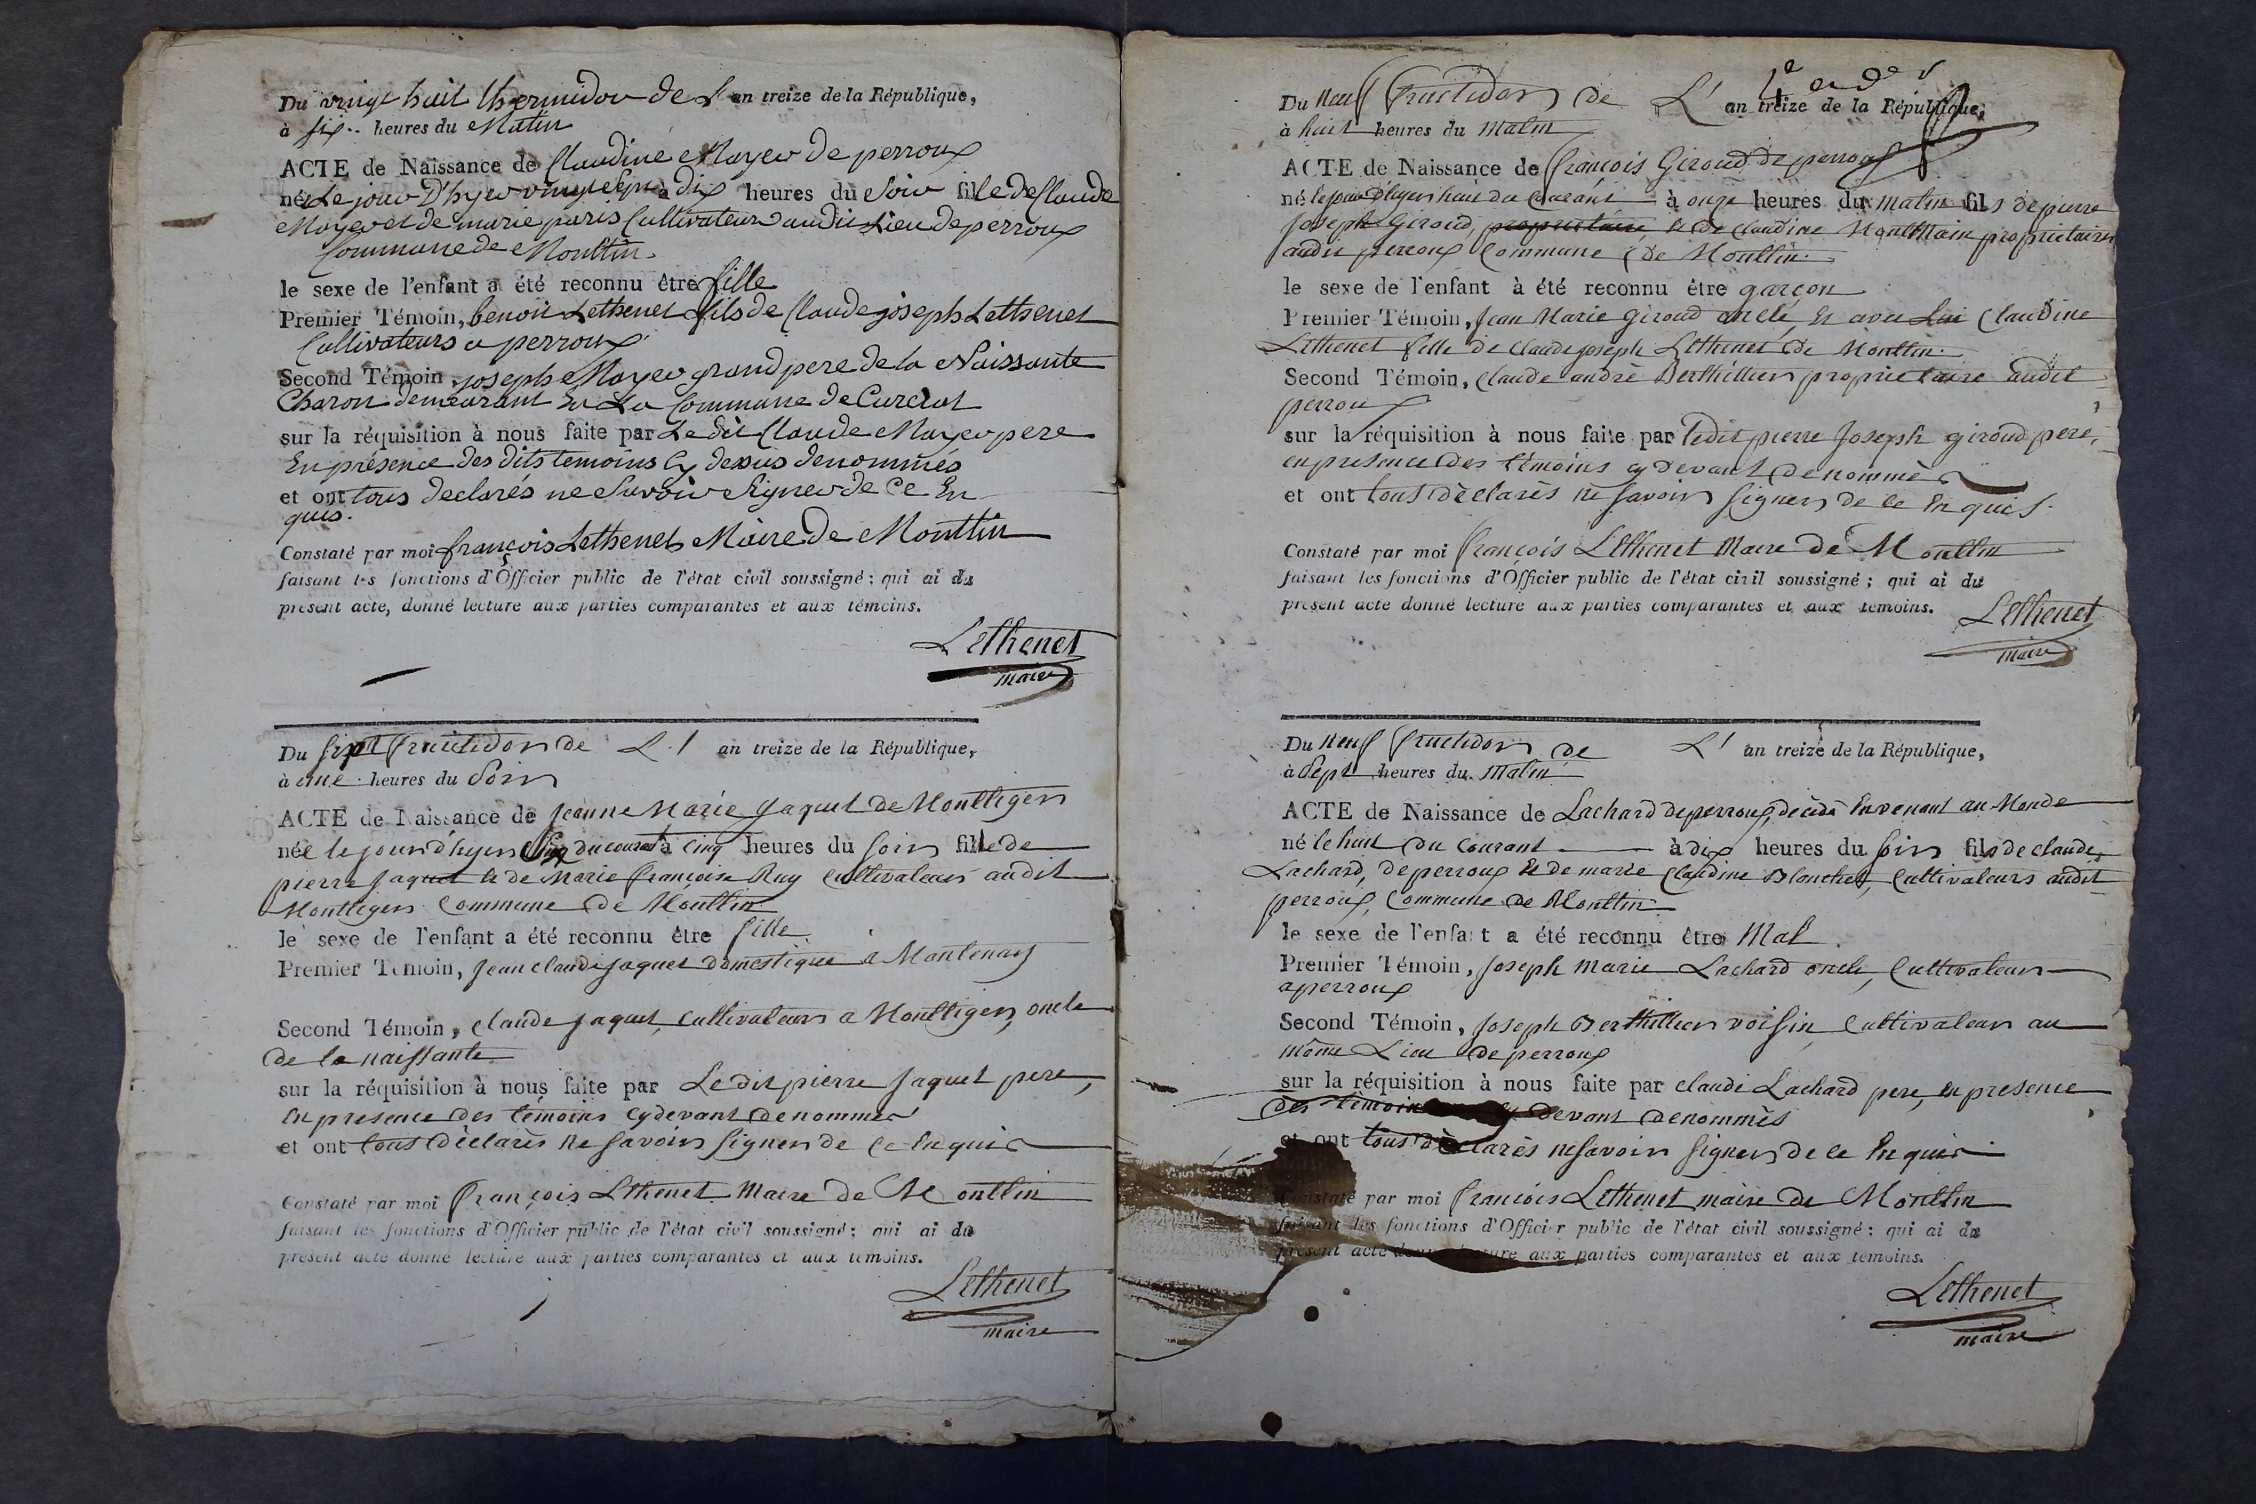 Du vingt huit thermidor de L' an treize de la République,
à six heures du Matin
ACTE de Naissance de Claudine Mayer de perroux
née Le jour D'hyer vingt Sept à dix heures du Soir fille de Claude
Mayer et de marie paris Cultivateurs audit Lieu de perroux
Commune de Montlin.
le sexe de l'enfant a été reconnu être fille
Premier Témoin, benoit Lethenet fils de Claude joseph Lethenet
Cultivateurs a perroux
Second Témoin, joseph Mayer grand pere de la Naissante
Charon demeurant En La Commune de Curciat
sur la réquisition à nous faite par Le dit Claude Mayer pere
En présence des dits temoins Cy dessus denommés
et ont tous declarés ne Savoir Signer de Ce En
quis.
Constaté par moi françois Lethenet Maire de Montlin
faisant les fonctions d'Officier public de l'état civil soussigné ; qui ai du
présent acte, donné lecture aux parties comparantes et aux témoins.
Lethenet
maire
Du sept fructidor de L' an treize de la République,
à cinq heures du Soir
ACTE de Naissance de Jeanne Marie Jaquet de Montliger
née le jour d'hyer six du courant à cinq heures du soir fille de
pierre Jaquet et de Marie françoise Ruy Cultivateurs audit
Montliger Commune de Montlin
le sexe de l'enfant a été reconnu être fille
Premier Témoin, Jean claude Jaquet domestique à Montenay
Second Témoin, claude Jaquet, Cultivateur a Montliger, oncle
de la naissante
sur la réquisition à nous faite par Le dit pierre Jaquet pere,
en presence des témoins cy devant denommés
et ont tous déclarés ne savoir signer de ce Enquis
Constaté par moi françois Lethenet Maire de Montlin
faisant les fonctions d'Officier public de l'état civil soussigné ; qui ai du
présent acte donné lecture aux parties comparantes et aux témoins.
Lethenet
maire
Du Neuf fructidor de L' an treize de la République,
à huit heures du Matin
ACTE de Naissance de françois Giroud de perroux
né le jour d'hyer huit du Courant à onze heures du matin fils de pierre
Joseph Giroud, propriétaire, et de Claudine Montmain propriétaires
audit perroux Commune de Montlin.
le sexe de l'enfant à été reconnu être garçon
Premier Témoin, Jean Marie Giroud oncle, et avec Lui Claudine
Lethenet fille de Claude joseph Lethenet de Montlin.
Second Témoin, Claude andré Berthillier propriétaire audit
perroux
sur la réquisition à nous faite par ledit pierre Joseph giroud pere,
en presence des témoins cy devant denommés
et ont tous déclarés ne savoir signer de ce Enquis.
Constaté par moi françois Lethenet Maire de Montlin
faisant les fonctions d'Officier public de l'état civil soussigné ; qui ai du
présent acte donné lecture aux parties comparantes et aux témoins.
Lethenet
maire
Du Neuf fructidor de L' an treize de la République,
à Sept heures du Matin
ACTE de Naissance de Lachard de perroux, décédé En venant au Monde
né le huit du Courant à dix heures du soir fils de claude
Lachard, de perroux et de marie Claudine Blanchet, Cultivateurs audit
perroux, Commune de Montlin
le sexe de l'enfant a été reconnu être Mal
Premier Témoin, Joseph Marie Lachard oncle, Cultivateur
a perroux
Second Témoin, Joseph Berthillier voisin, Cultivateur au
même Lieu de perroux
sur la réquisition à nous faite par claude Lachard pere, en presence
des témoins cy devant denommés
et ont tous déclarés ne savoir signer de ce Enquis
Constaté par moi françois Lethenet maire de Montlin
faisant les fonctions d'Officier public de l'état civil soussigné ; qui ai du
présent acte donné lecture aux parties comparantes et aux témoins.
Lethenet
maire